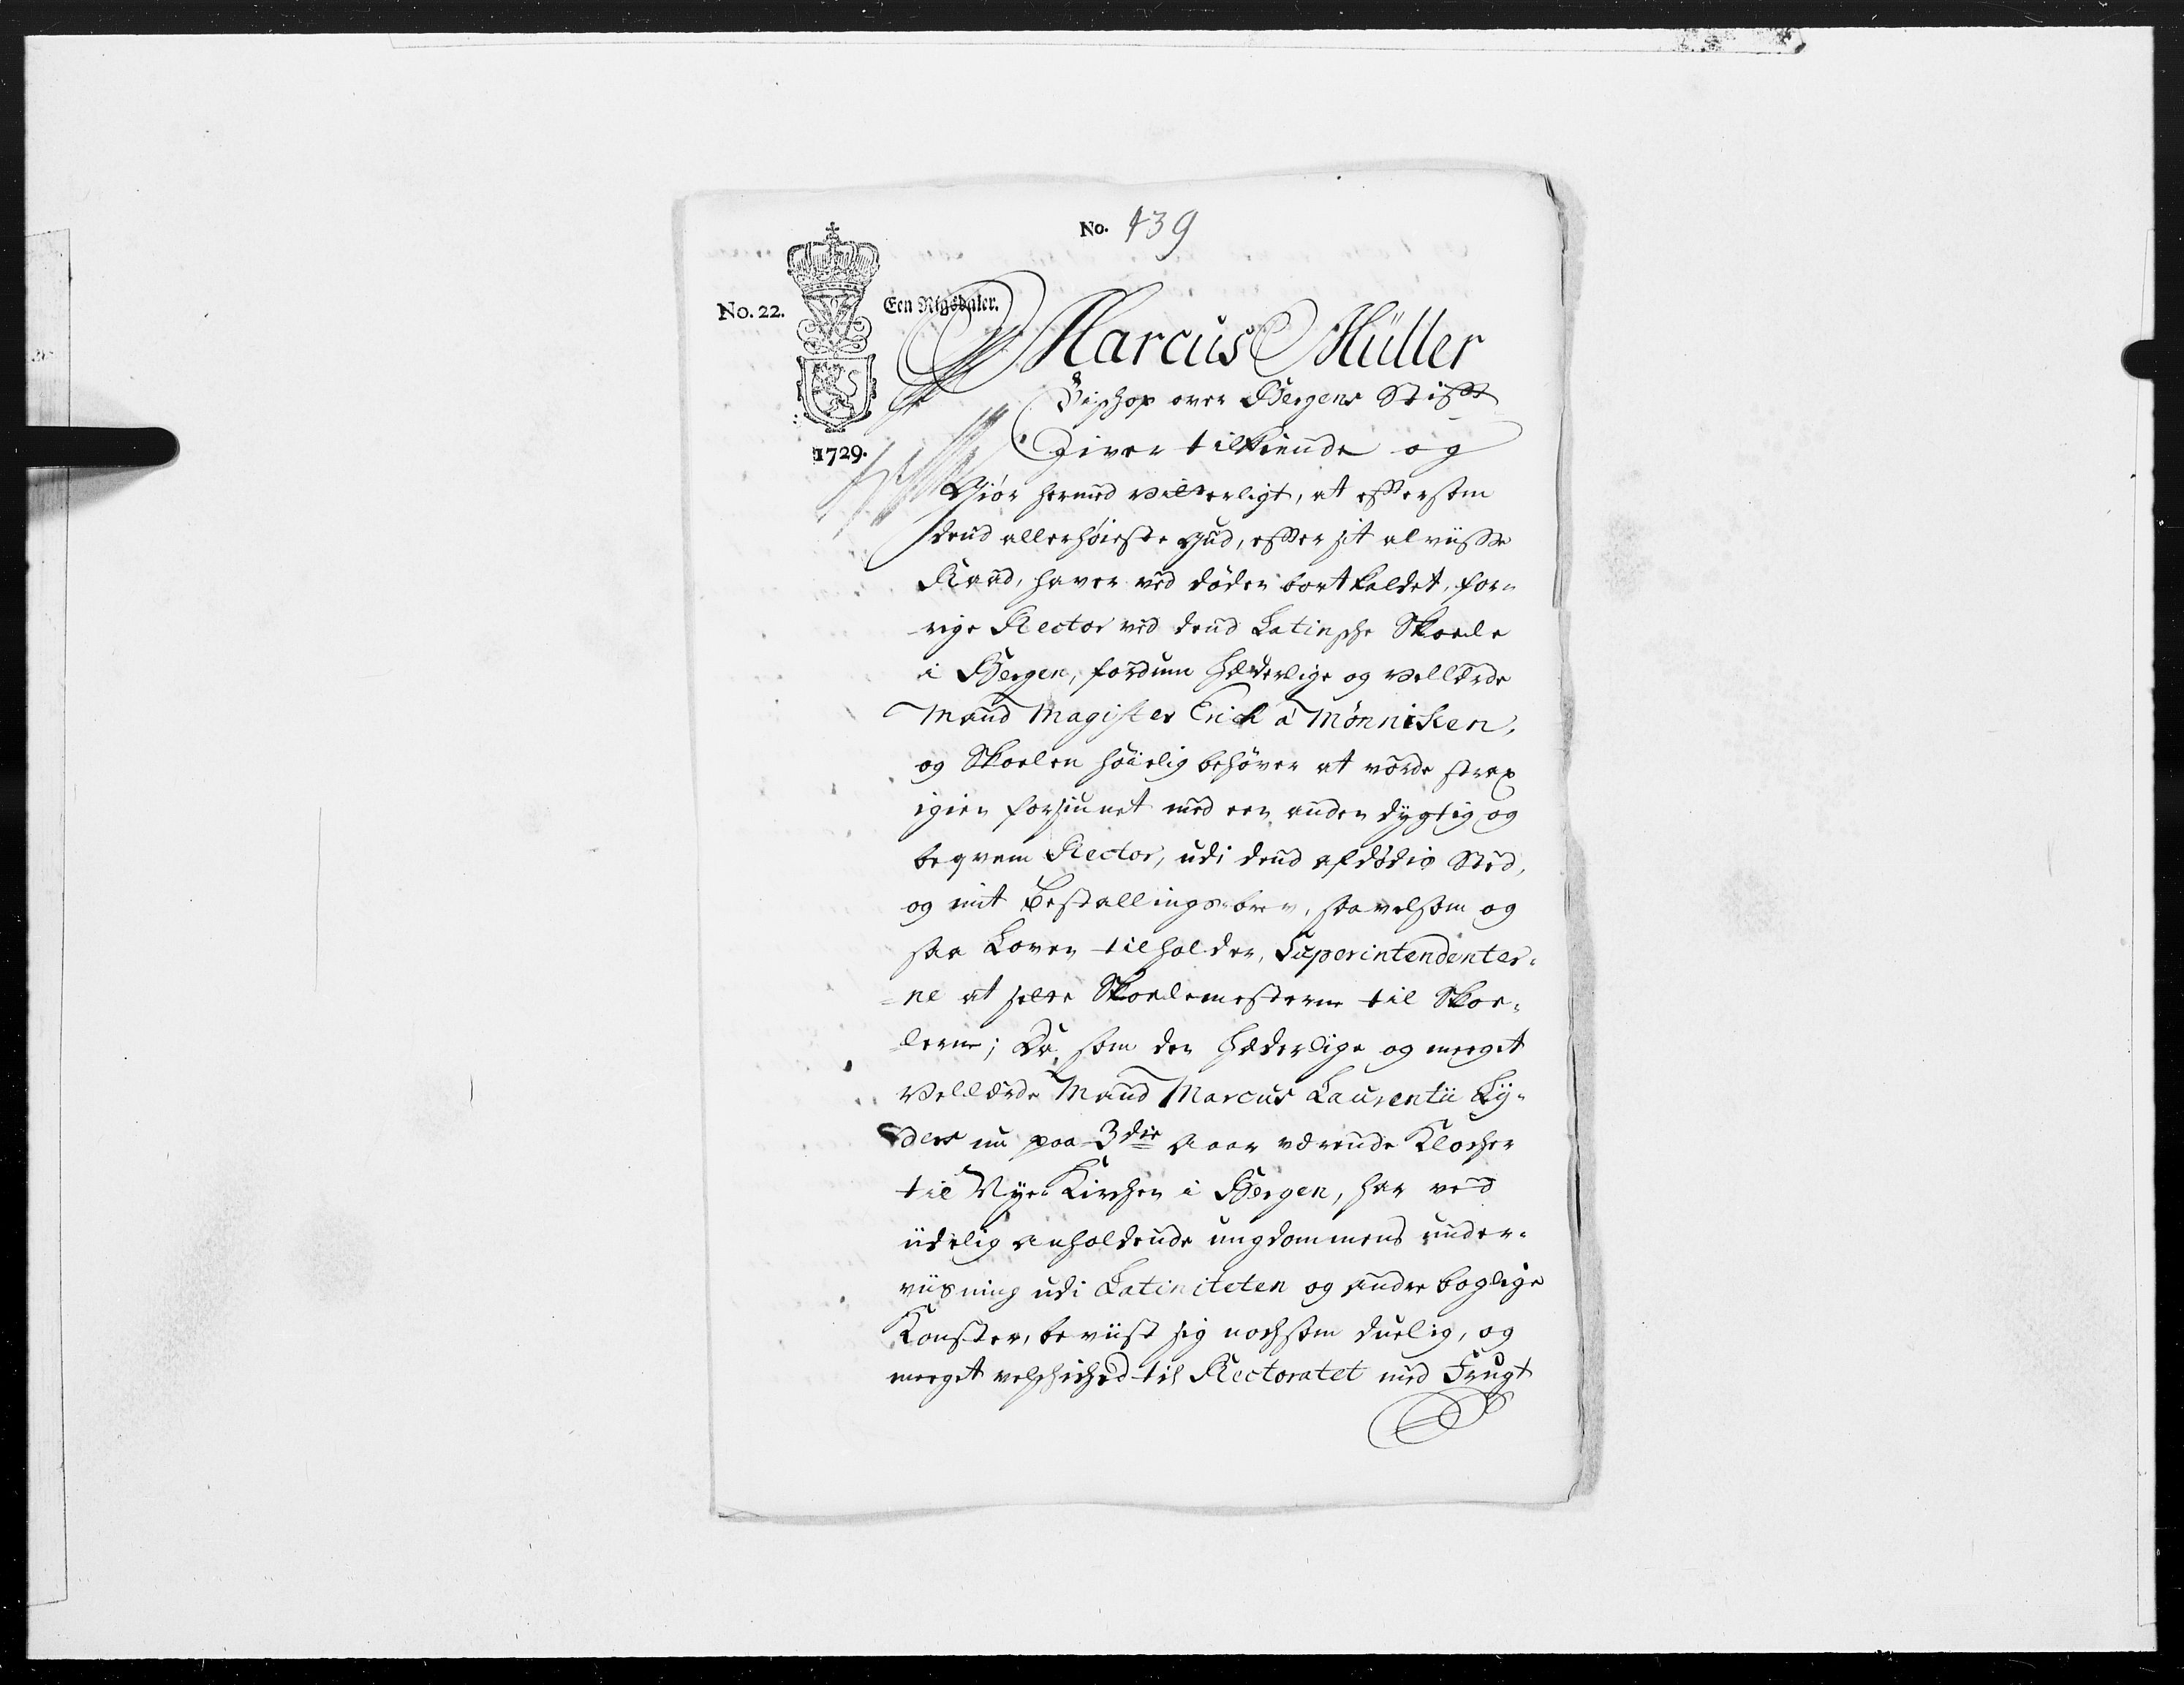 No. 439
No. 22.
Een Rigsdaler.
1729.
Marcus Müller
Bischop over Bergens Stifft
Giver tilkiende og
Giør hermed vitterligt, at effterstm
dend allerhøieste Gud, effter sit alviisse
Raad, haver ved døden bortkaldet, for-
rige Rector ved dend Latinsche Skoele
i Bergen, fordum Hæderlige og Vellærde
Mand Magister Erich á Mønniken,
og Skoelen høielig behøver at vorde strax
igien forsiunet med een anden dygtig og
beqvem Rector, udi dend afdødis Sted,
og mit Bestallingsbrev, saavelsom og
saa Loven tilholder, Superintendenter-
=ne at sette Skoelemesterne til Skoe-
lerne; Da som den Hæderlige og meeget
Vellærde Mand Marcus Laurentii Ly-
ders nu paa 3die Aaar værende Klocher
til Nye-Kirchen i Bergen, har ved
idelig anholdende ungdommens under-
viisning udi Latiniteten og andre boglige
Konster, beviist sig nochsom duelig, og
meeget velschiched til Rectoratet med Frugt